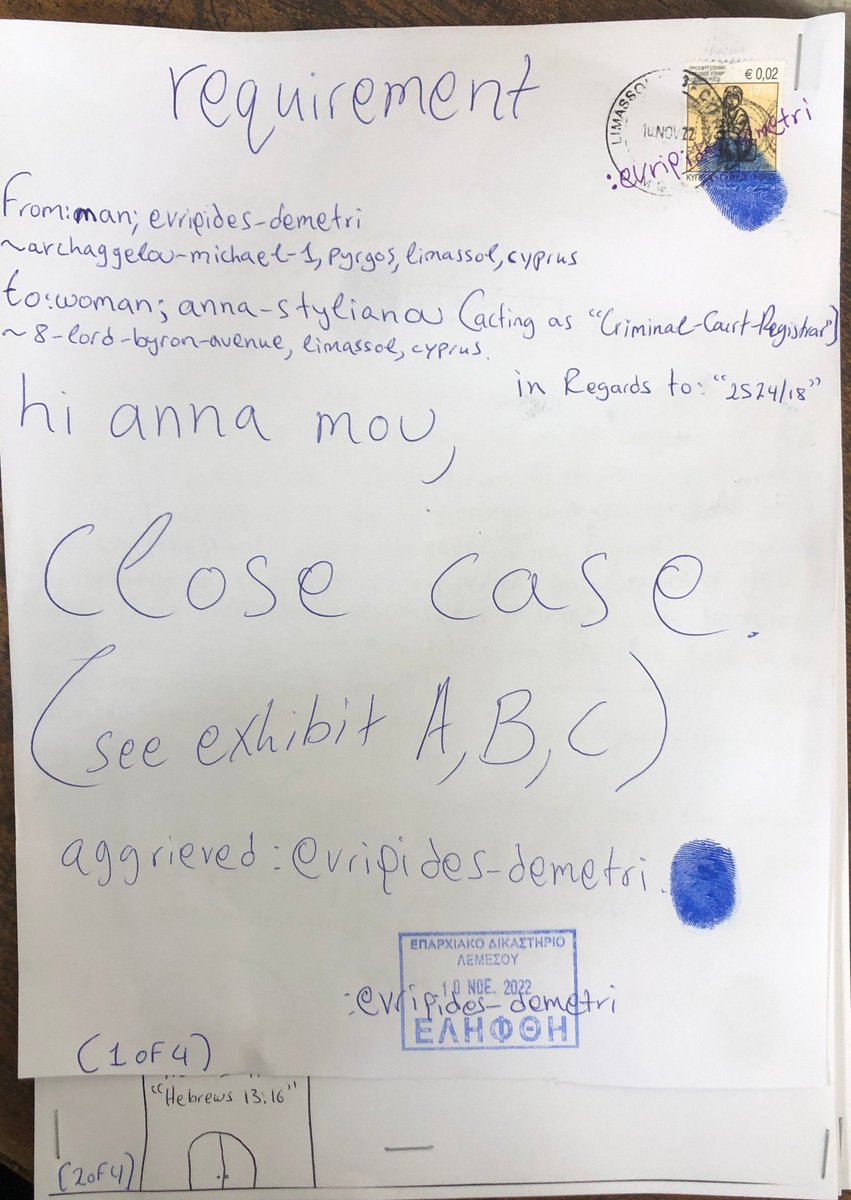 requirement
€ 0,02
LIMASSOL
10 NOV 22
:evripides-demetri
From:man; evripides-demetri
~archaggelou-michael-1, pyrgos, limassol, cyprus
to:woman; anna-stylianou (acting as "Criminal-Court-Registrar")
~ 8-lord-byron-avenue, limassol, cyprus.
in Regards to: "2524/18"
hi anna mou,
Close case.
(see exhibit A, B, C)
aggrieved: evripides-demetri.
ΕΠΑΡΧΙΑΚΟ ΔΙΚΑΣΤΗΡΙΟ
ΛΕΜΕΣΟΥ
10 ΝΟΕ. 2022
:evripides-demetri
ΕΛΗΦΘΗ
(1 OF 4)
"Hebrews 13:16"
(2 of 4)